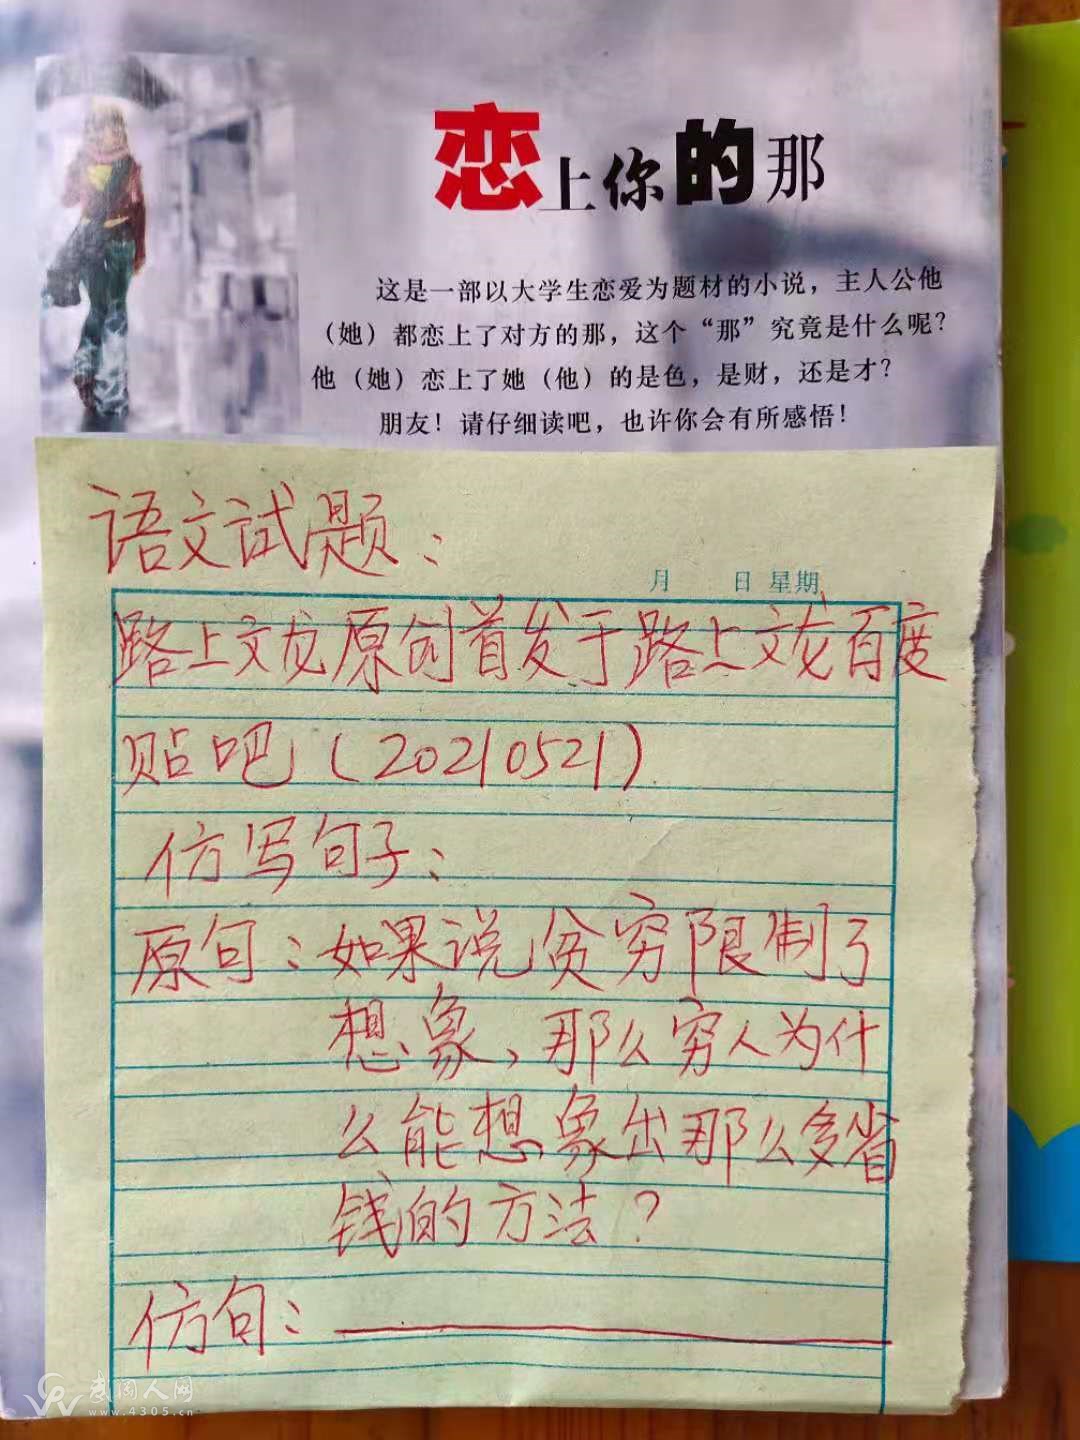 恋上你的那
这是一部以大学生恋爱为题材的小说，主人公他
（她）都恋上了对方的那，这个“那”究竟是什么呢？
他（她）恋上了她（他）的是色，是财，还是才？
朋友！请仔细读吧，也许你会有所感悟！
语文试题：
月 日 星期
路上文龙原创首发于路上文龙百度
贴吧（20210521）
仿写句子：
原句：如果说贫穷限制了
想象，那么穷人为什
么能想象出那么多省
钱的方法？
仿句：
人网
www.4305.cn